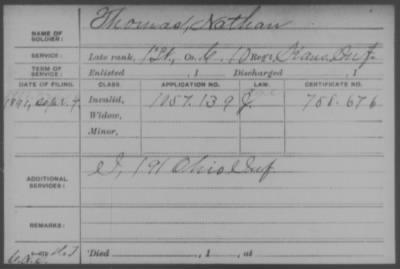 Thomas, Nathan
NAME OF SOLDIER:
SERVICE: Late rank, Pt., Co. G, 10 Reg't, Kans. Inf.
TERM OF SERVICE: Enlisted , 1 Discharged , 1
DATE OF FILING. CLASS. APPLICATION NO. LAW. CERTIFICATE NO.
1891, Invalid, 1057.139 758.676
Widow,
Minor,
ADDITIONAL SERVICES: I, 191 Ohio Inf
REMARKS:
Died , 1 , at